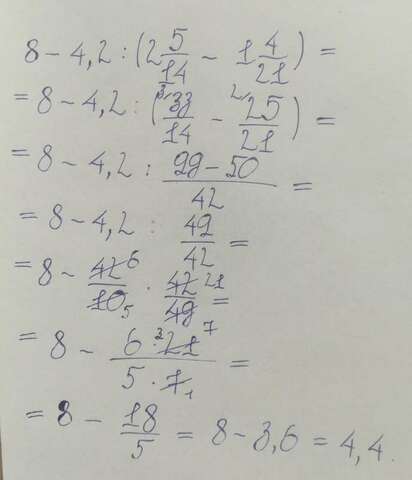 8 - 4,2 : (2 5/14 - 1 4/21) =
= 8 - 4,2 : (33/14 - 25/21) =
= 8 - 4,2 : (99-50)/42 =
= 8 - 4,2 : 49/42 =
= 8 - 42/10 · 42/49 =
= 8 - (6 · 21)/(5 · 7) =
= 8 - 18/5 = 8 - 3,6 = 4,4.